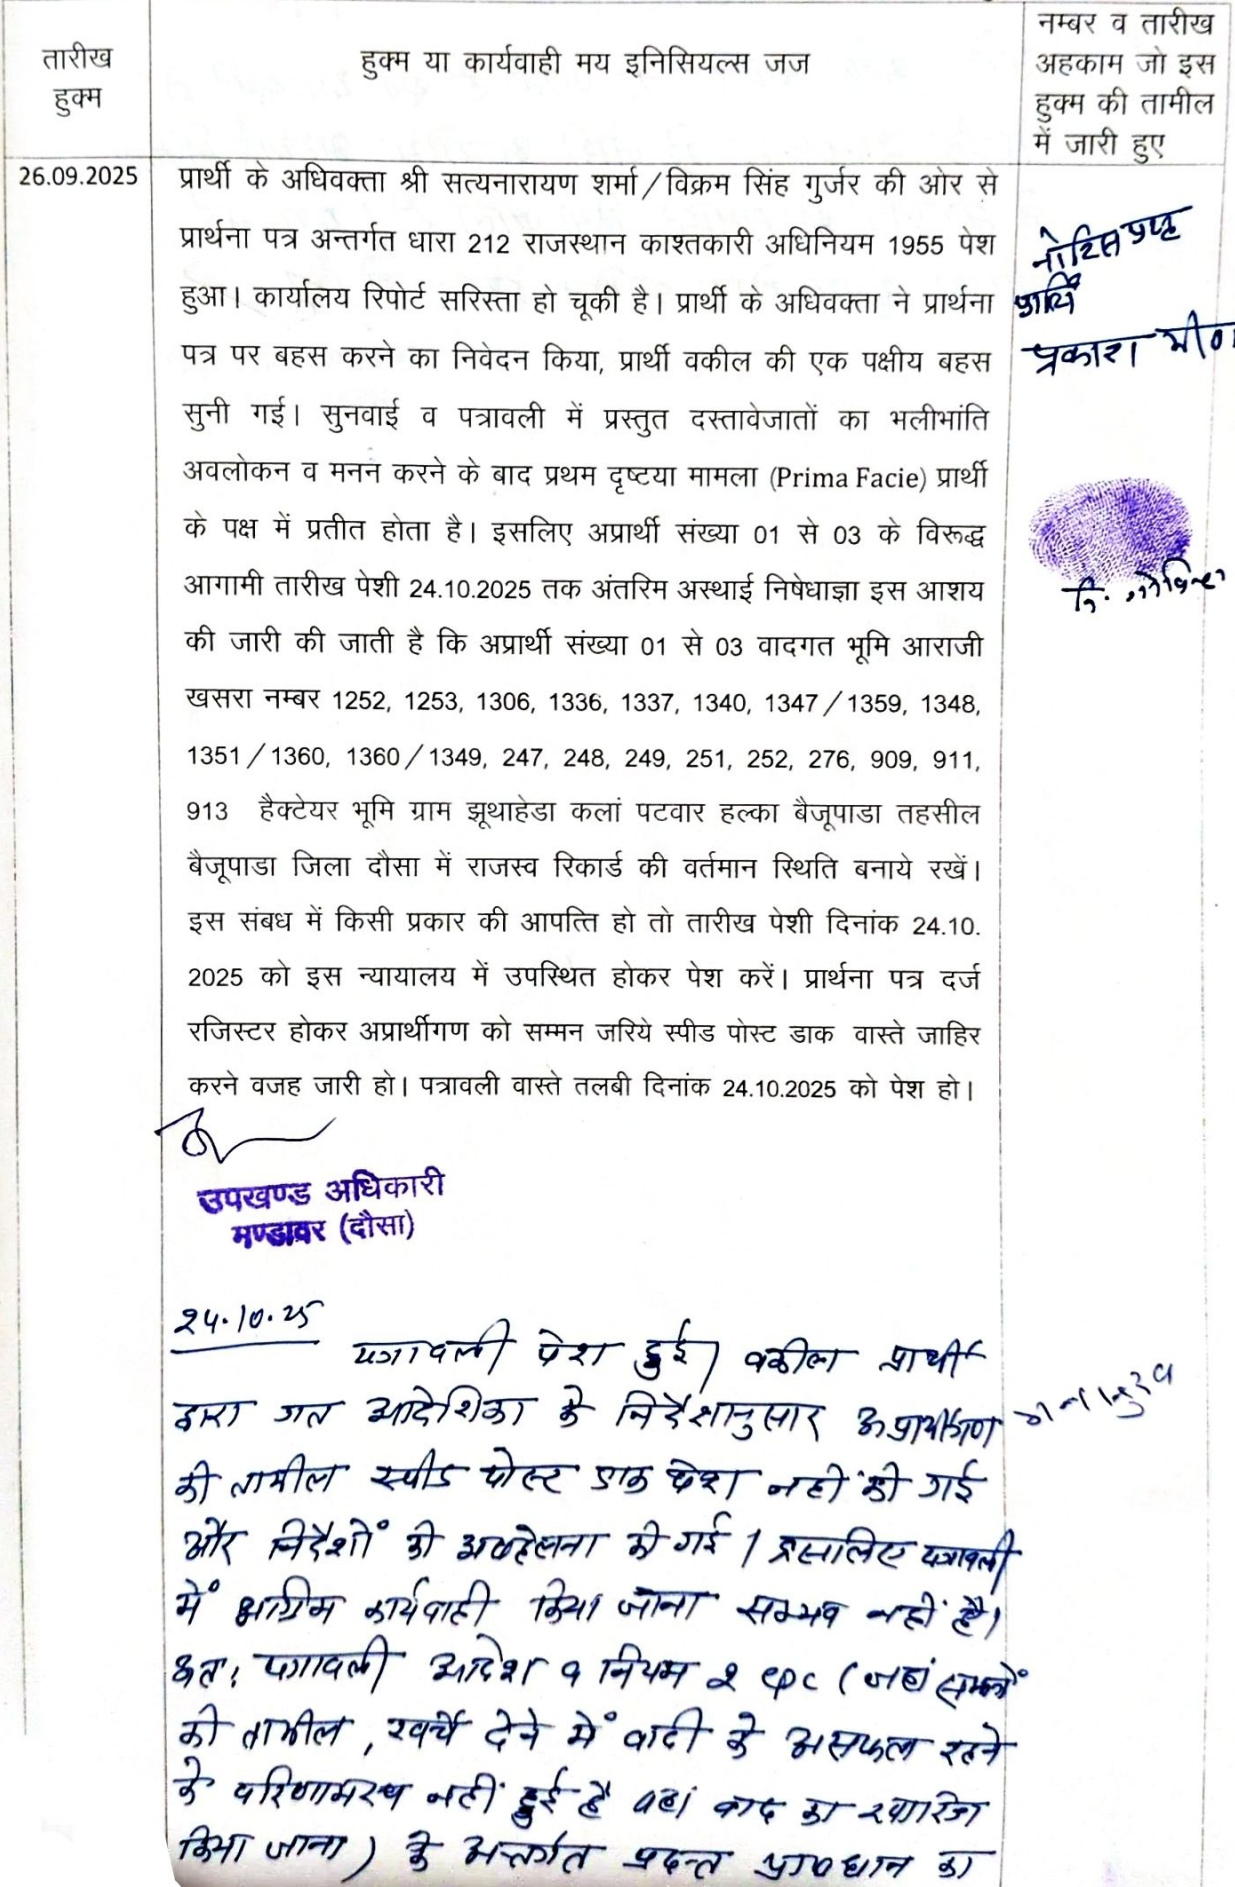 तारीख
हुक्म
हुक्म या कार्यवाही मय इनिसियल्स जज
नम्बर व तारीख
अहकाम जो इस
हुक्म की तामील
में जारी हुए
26.09.2025
प्रार्थी के अधिवक्ता श्री सत्यनारायण शर्मा/विक्रम सिंह गुर्जर की ओर से
प्रार्थना पत्र अन्तर्गत धारा 212 राजस्थान काश्तकारी अधिनियम 1955 पेश
हुआ। कार्यालय रिपोर्ट सरिस्ता हो चूकी है। प्रार्थी के अधिवक्ता ने प्रार्थना
पत्र पर बहस करने का निवेदन किया, प्रार्थी वकील की एक पक्षीय बहस
सुनी गई। सुनवाई व पत्रावली में प्रस्तुत दस्तावेजातों का भलीभांति
अवलोकन व मनन करने के बाद प्रथम दृष्टया मामला (Prima Facie) प्रार्थी
के पक्ष में प्रतीत होता है। इसलिए अप्रार्थी संख्या 01 से 03 के विरूद्ध
आगामी तारीख पेशी 24.10.2025 तक अंतरिम अस्थाई निषेधाज्ञा इस आशय
की जारी की जाती है कि अप्रार्थी संख्या 01 से 03 वादगत भूमि आराजी
खसरा नम्बर 1252, 1253, 1306, 1336, 1337, 1340, 1347/1359, 1348,
1351/1360, 1360/1349, 247, 248, 249, 251, 252, 276, 909, 911,
913 हैक्टेयर भूमि ग्राम झूथाहेडा कलां पटवार हल्का बैजूपाडा तहसील
बैजूपाडा जिला दौसा में राजस्व रिकार्ड की वर्तमान स्थिति बनाये रखें।
इस संबध में किसी प्रकार की आपत्ति हो तो तारीख पेशी दिनांक 24.10.
2025 को इस न्यायालय में उपस्थित होकर पेश करें। प्रार्थना पत्र दर्ज
रजिस्टर होकर अप्रार्थीगण को सम्मन जरिये स्पीड पोस्ट डाक वास्ते जाहिर
करने वजह जारी हो। पत्रावली वास्ते तलबी दिनांक 24.10.2025 को पेश हो।
नोटिस
प्रकाश मीणा
नि.
उपखण्ड अधिकारी
मण्डावर (दौसा)
24.10.25
पत्रावली पेश हुई। वकील प्रार्थी
द्वारा गत आदेशिका के निर्देशानुसार अप्रार्थीगण
की तामील स्पीड पोस्ट डाक पेश नहीं की गई
और निर्देशों की अवहेलना की गई। इसलिए पत्रावली
में अग्रिम कार्यवाही किया जाना सम्भव नहीं है।
अतः पत्रावली आदेश 9 नियम 2 CPC (जहां सम्मनों
की तामील, खर्चे देने में वादी के असफल रहने
के परिणामस्वरूप नहीं हुई है वहां वाद का खारिज
किया जाना) के अन्तर्गत प्रदत्त प्रावधान का